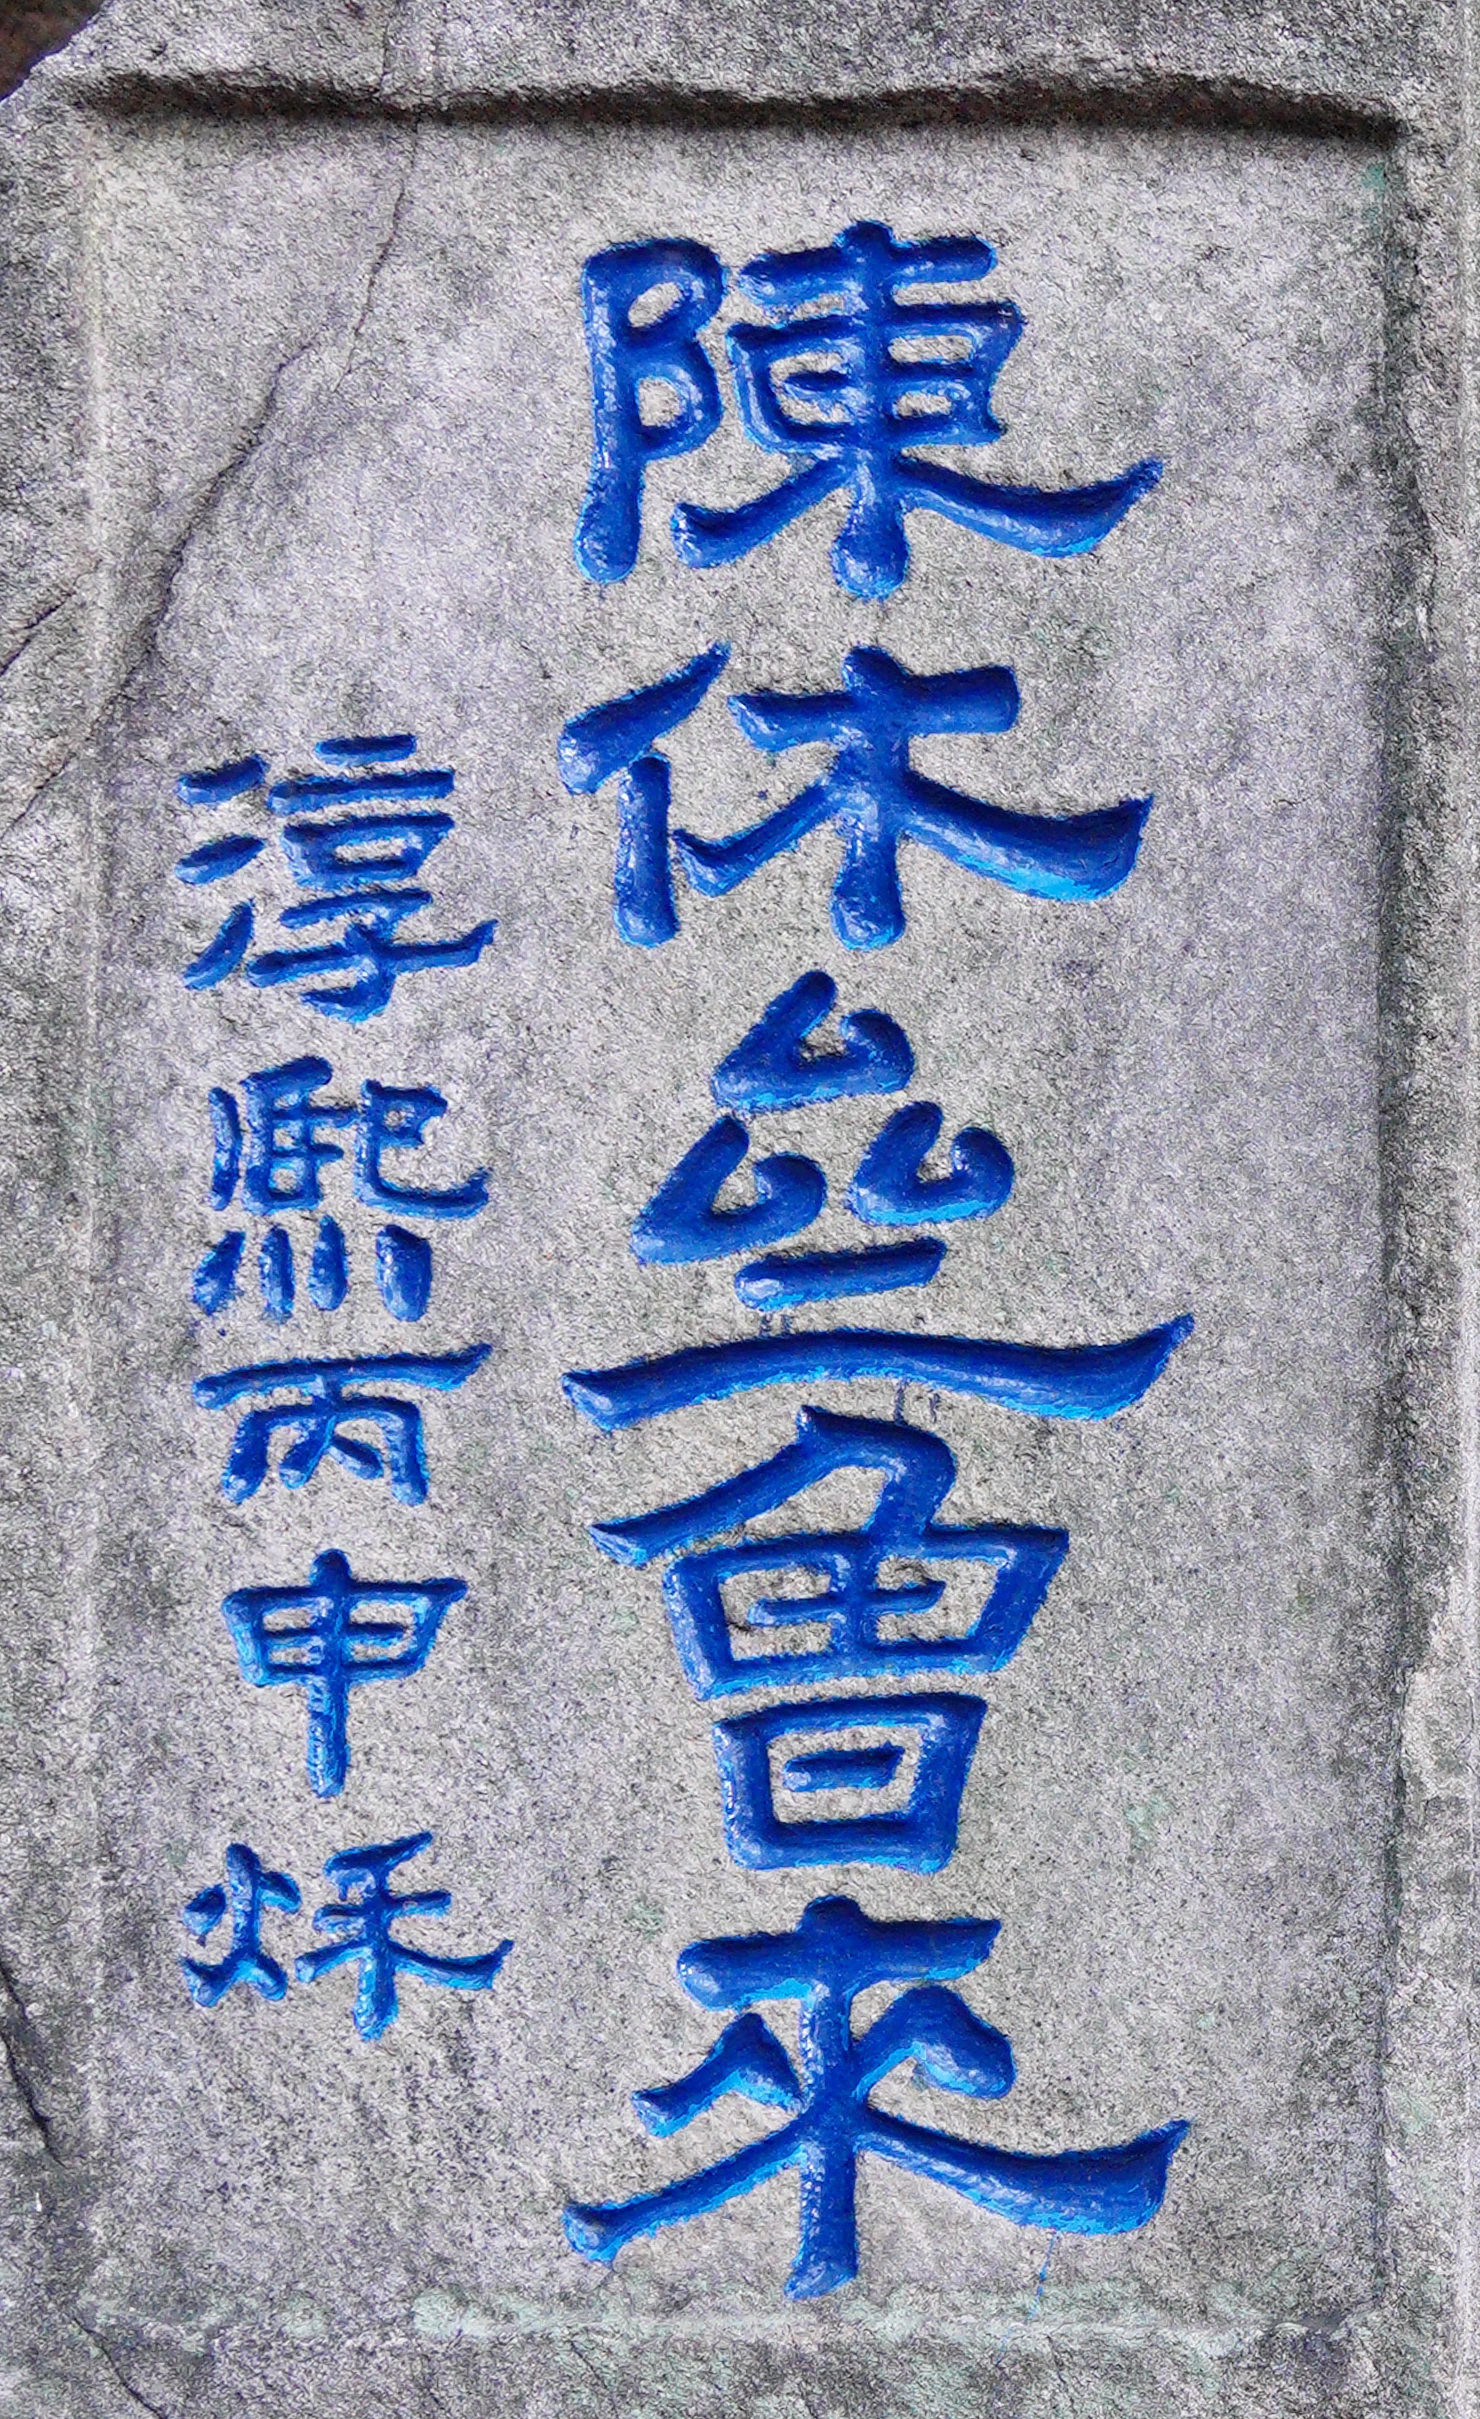 陳休亝會來
淳熙丙申秌